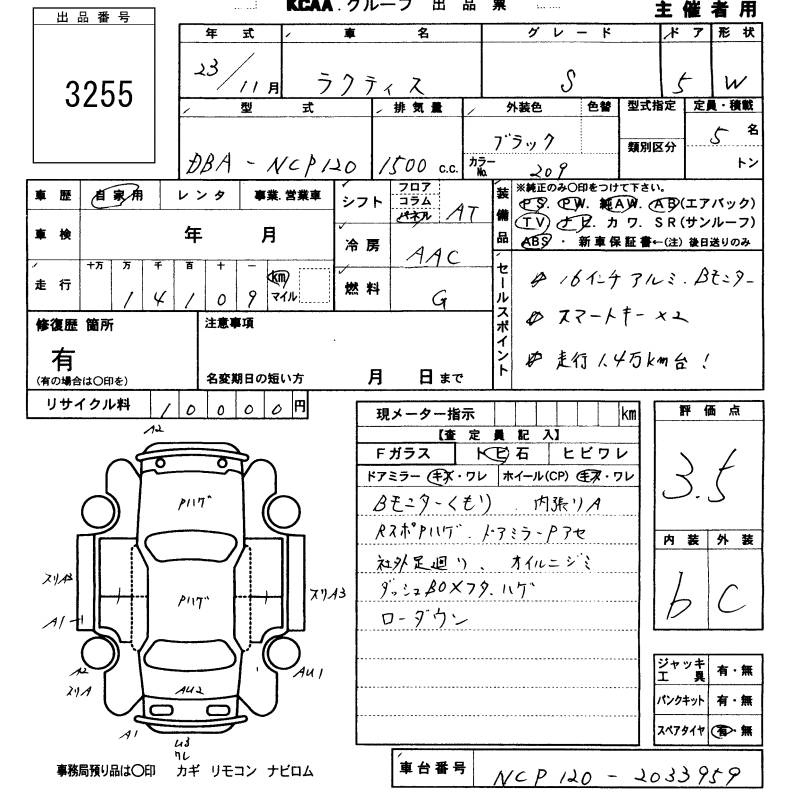 KCAA.グループ 出品票
主催者用
出品番号
3255
年式 車名 グレード ドア 形状
23/11月 ラクティス S 5 W
型式 排気量 外装色 色替 型式指定 定員・積載
類別区分
DBA-NCP120 1500 c.c. ブラック カラーNo. 209 5 名
トン
車歴 自家用 レンタ 事業.営業車
車検 年 月
走行 十万 万 千 百 十 一 km マイル
1 4 1 0 9
シフト フロア コラム パネル AT
冷房 AAC
燃料 G
装備品 ※純正のみ〇印をつけて下さい。
PS. PW. 純AW. AB(エアバック)
TV・ナビ. カワ. SR(サンルーフ)
ABS・新車保証書←(注)後日送りのみ
セールスポイント
16インチアルミ.Bモニター
スマートキー×2
走行1.4万km台!
修復歴 箇所
有
(有の場合は〇印を)
注意事項
名変期日の短い方 月 日まで
リサイクル料 10000円
現メーター指示 km
【査定員記入】
Fガラス トビ石 ヒビワレ
ドアミラー キズ・ワレ ホイール(CP) キズ・ワレ
Bモニターくもり. 内張りA
RスポPハゲ. ドアミラーPアセ
社外足廻り、オイルニジミ
ダッシュBOXフタ.ハゲ
ローダウン
評価点
3.5
内装 外装
b C
ジャッキ工具 有・無
パンクキット 有・無
スペアタイヤ 有・無
A2
Pハゲ
スリA3
スリA3
Pハゲ
A1
A2
スリA
AU2
AU1
A1
U3
ワレ
事務局預り品は〇印 カギ リモコン ナビロム
車台番号 NCP120-2033959